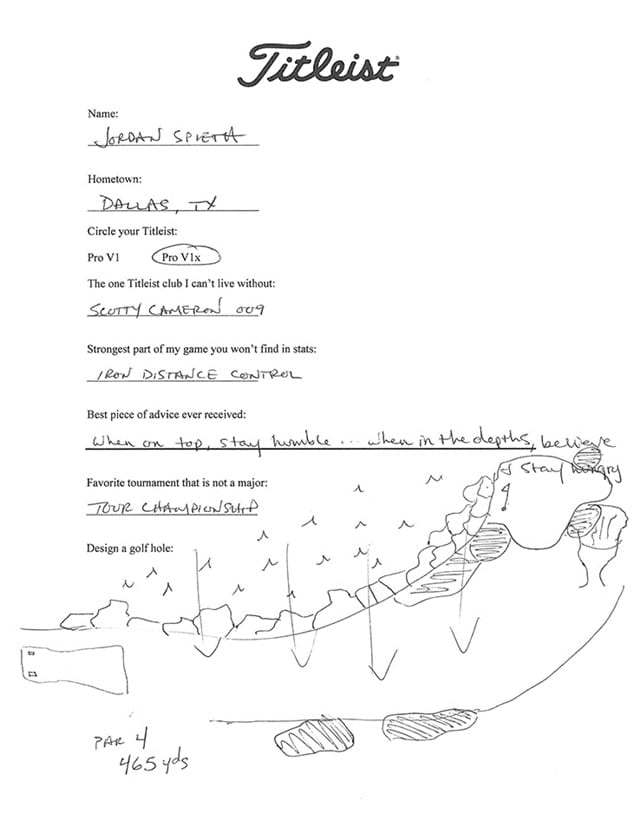 Titleist
Name:
JORDAN SPIETH
Hometown:
DALLAS, TX
Circle your Titleist:
Pro V1 Pro V1x
The one Titleist club I can't live without:
SCOTTY CAMERON 009
Strongest part of my game you won't find in stats:
IRON DISTANCE CONTROL
Best piece of advice ever received:
When on top, stay humble ... when in the depths, believe
& stay hungry
Favorite tournament that is not a major:
TOUR CHAMPIONSHIP
Design a golf hole:
PAR 4
465 yds